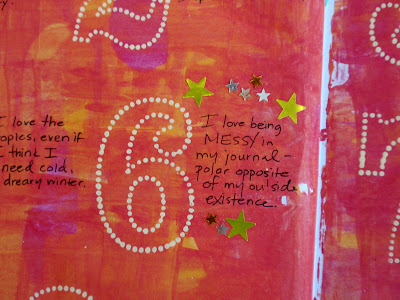 I love the
opics, even if
I think I
need cold,
dreary winter.
6
I love being
MESSY in
my journal -
polar opposite
of my outside
existence.